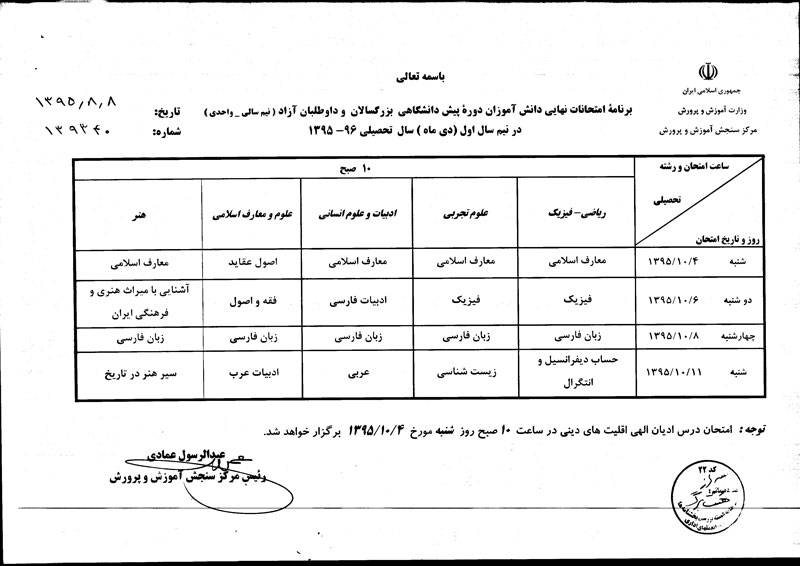 باسمه تعالی
جمهوری اسلامی ایران
وزارت آموزش و پرورش
مرکز سنجش آموزش و پرورش
برنامهٔ امتحانات نهایی دانش آموزان دورهٔ پیش دانشگاهی بزرگسالان و داوطلبان آزاد ( نیم سالی _ واحدی )
در نیم سال اول (دی ماه ) سال تحصیلی ۹۶- ۱۳۹۵
تاریخ: ۱۳۹۵/۸/۸
شماره: ۱۳۹۳۴۰
ساعت امتحان و رشته تحصیلی
روز و تاریخ امتحان
۱۰ صبح
ریاضی- فیزیک علوم تجربی ادبیات و علوم انسانی علوم و معارف اسلامی هنر
شنبه ۱۳۹۵/۱۰/۴ معارف اسلامی معارف اسلامی معارف اسلامی اصول عقاید معارف اسلامی
دو شنبه ۱۳۹۵/۱۰/۶ فیزیک فیزیک ادبیات فارسی فقه و اصول آشنایی با میراث هنری و
فرهنگی ایران
چهارشنبه ۱۳۹۵/۱۰/۸ زبان فارسی زبان فارسی زبان فارسی زبان فارسی زبان فارسی
شنبه ۱۳۹۵/۱۰/۱۱ حساب دیفرانسیل و
انتگرال
زیست شناسی عربی ادبیات عرب سیر هنر در تاریخ
توجه : امتحان درس ادیان الهی اقلیت های دینی در ساعت ۱۰ صبح روز شنبه مورخ ۱۳۹۵/۱۰/۴ برگزار خواهد شد.
عبدالرسول عمادی
رئیس مرکز سنجش آموزش و پرورش
کد ۲۲